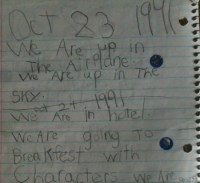 Oct 23 1991
We Are up in
The Airplane
We Are up in The
SKY.
Oct 24, 1991
We Are in hotel
We Are going To
Breakfest with
Characters We Are